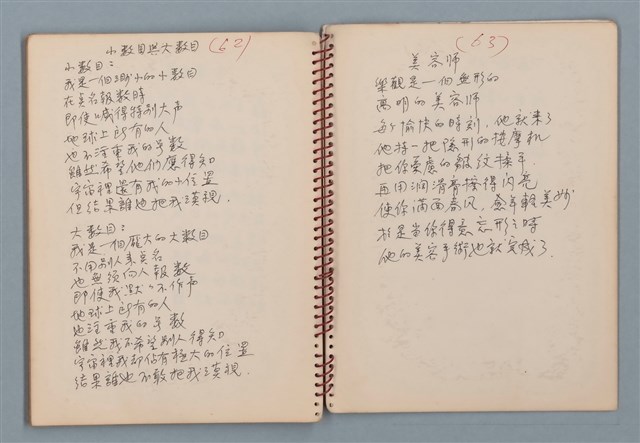 小數目與大數目 (62)
小數目：
我是一個渺小的小數目
在點名報數時
即使喊得特別大声
地球上所有的人
也不注重我的号數
雖然希望他們應得知
宇宙裡還有我的小位置
但結果誰也把我漠視.
大數目：
我是一個龐大的大數目
不用別人來點名
也無須向人報數
即使我默默不作声
地球上所有的人
也注重我的号數
雖然我不希望別人得知
宇宙裡我却佔有極大的位置
結果誰也不敢把我漠視.
(63)
美容师
樂觀是一個無形的
高明的美容师
每个愉快的時刻, 他就來了
他持一把隐形的按摩机
把你憂慮的皺紋揉平.
再用润滑膏按得闪亮
使你满面春风, 愈年輕美妙
於是当你得意忘形之時
他的美容手術也就完成了.